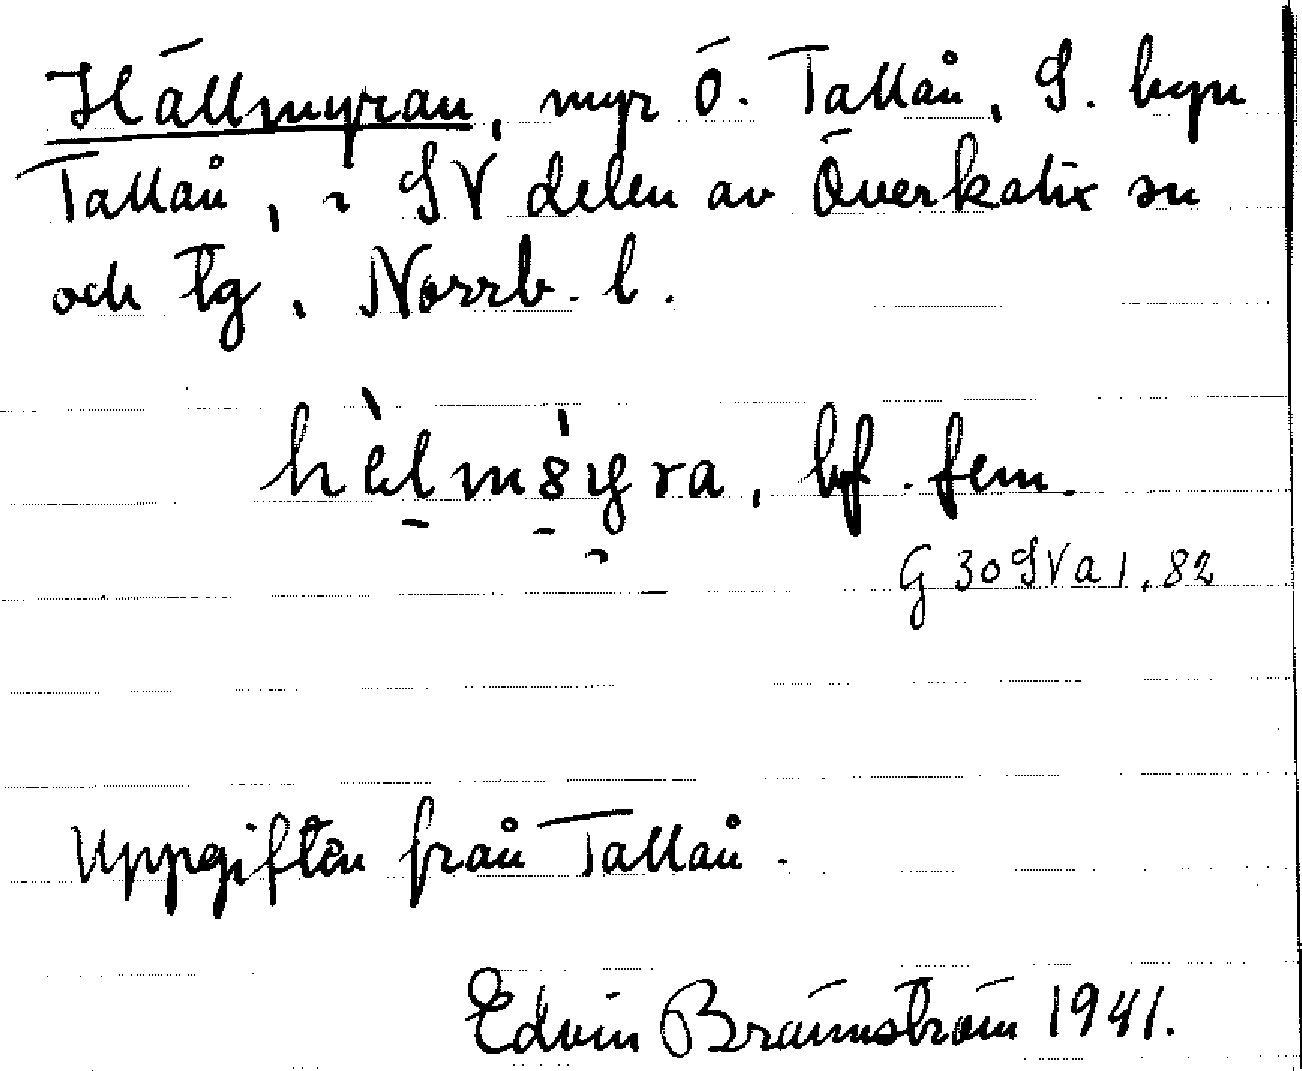 Hällmyran, myr Ö. Tallån, S. byn
Tallån, i SV delen av Överkalix sn
och tg, Norrb. l.
hèlmyra, bf. fem.
G 30 SV a 1, 82
Uppgiften från Tallån.
Edvin Brännström 1941.